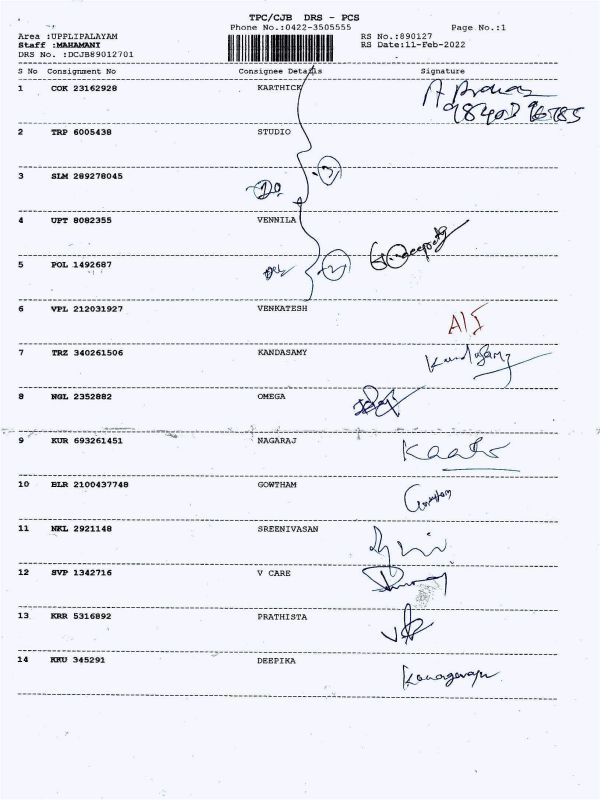 TPC/CJB DRS - PCS
Phone No.:0422-3505555 Page No.:1
Area :UPPLIPALAYAM RS No.:890127
Staff :MAHAMANI RS Date:11-Feb-2022
DRS No. :DCJB89012701
S No Consignment No Consignee Details Signature
1 COK 23162928 KARTHICK
2 TRP 6005438 STUDIO
3 SLM 289278045
4 UPT 8082355 VENNILA
5 POL 1492687
6 VPL 212031927 VENKATESH
7 TRZ 340261506 KANDASAMY Kandasamy
8 NGL 2352882 OMEGA
9 KUR 693261451 NAGARAJ
10 BLR 2100437748 GOWTHAM Gowtham
11 NKL 2921148 SREENIVASAN
12 SVP 1342716 V CARE
13 KRR 5316892 PRATHISTA
14 KKU 345291 DEEPIKA Kanagaraju